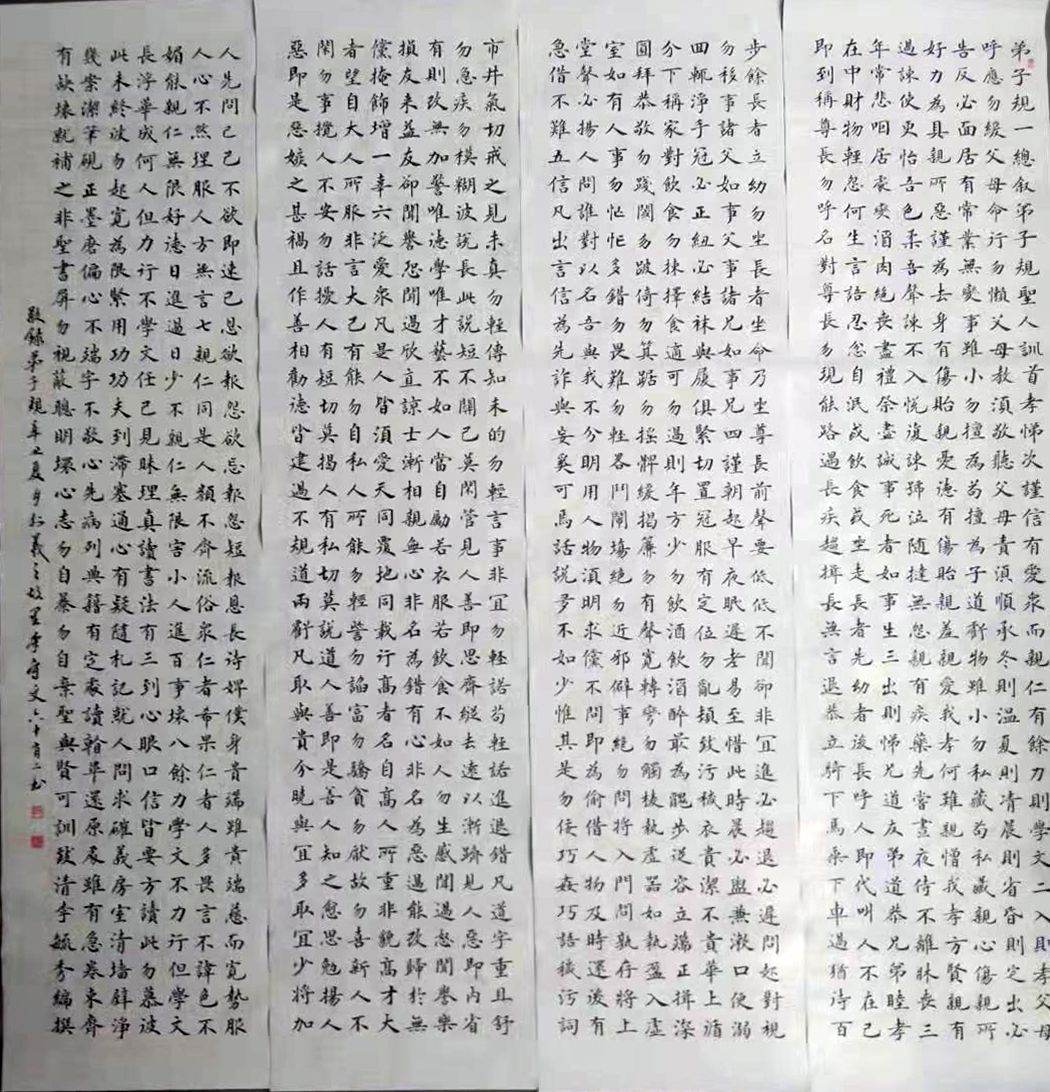 弟子規一總叙弟子規聖人訓首孝悌次謹信有愛衆而親仁有餘力則學文二入則孝父母
呼應勿緩父母命行勿懶父母教須敬聽父母責須順承冬則溫夏則凊晨則省昏則定出必
告反必面居有常業無變事雖小勿擅為苟擅為子道虧物雖小勿私藏苟私藏親心傷親所
好力為具親所惡謹為去身有傷貽親憂德有傷貽親羞親愛我孝何雖親憎我孝方賢親有
過諫使更怡吾色柔吾聲諫不入悅復諫號泣隨撻無怨親有疾藥先嘗晝夜侍不離牀喪三
年常悲咽居處變酒肉絕喪盡禮祭盡誠事死者如事生三出則悌兄道友弟道恭兄弟睦孝
在中財物輕忿何生言語忍忿自泯或飲食或坐走長者先幼者後長呼人即代叫人不在己
即到稱尊長勿呼名對尊長勿現能路遇長疾趨揖長無言退恭立騎下馬乘下車過猶待百
步餘長者立幼勿坐長者坐命乃坐尊長前聲要低低不聞卻非宜進必趨退必遲問起對視
勿移事諸父如事父事諸兄如事兄四謹朝起早夜眠遲老易至惜此時晨必盥兼漱口便溺
回輒淨手冠必正紐必結袜與履俱緊切置冠服有定位勿亂頓致污穢衣貴潔不貴華上循
分下稱家對飲食勿揀擇食適可勿過則年方少勿飲酒飲酒醉最為醜步從容立端正揖深
圓拜恭敬勿踐閾勿跛倚勿箕踞勿搖髀緩揭簾勿有聲寬轉彎勿觸棱執虛器如執盈入虛
室如有人事勿忙忙多錯勿畏難勿輕畧鬥鬧場絕勿近邪僻事絕勿問將入門問孰存將上
堂聲必揚人問誰對以名吾與我不分明用人物須明求儻不問即為偷借人物及時還後有
急借不難五信凡出言信為先詐與妄奚可焉話說多不如少惟其是勿佞巧姦巧語穢污詞
市井氣切戒之見未真勿輕傳知未的勿輕言事非宜勿輕諾苟輕諾進退錯凡道字重且舒
勿急疾勿模糊彼說長此說短不關己莫閑管見人善即思齊縱去遠以漸躋見人惡即內省
有則改無加警唯德學唯才藝不如人當自勵若衣服若飲食不如人勿生慼聞過怒聞譽樂
損友來益友卻聞譽恐聞過欣直諒士漸相親無心非名為錯有心非名為惡過能改歸於無
儻掩飾增一辜六泛愛衆凡是人皆須愛天同覆地同載行高者名自高人所重非貌高才大
者望自大人所服非言大己有能勿自私人所能勿輕訾勿諂富勿驕貧勿厭故勿喜新人不
閑勿事攪人不安勿話擾人有短切莫揭人有私切莫說道人善即是善人知之愈思勉揚人
惡即是惡嫉之甚禍且作善相勸德皆建過不規道兩虧凡取與貴分曉與宜多取宜少將加
人先問己己不欲即速已恩欲報怨欲忘報怨短報恩長待婢僕身貴端雖貴端慈而寬勢服
人心不然理服人方無言七親仁同是人類不齊流俗衆仁者希果仁者人多畏言不諱色不
媚能親仁無限好德日進過日少不親仁無限害小人進百事壞八餘力學文不力行但學文
長浮華成何人但力行不學文任己見昧理真讀書法有三到心眼口信皆要方讀此勿慕彼
此未終彼勿起寬為限緊用功功夫到滯塞通心有疑隨札記就人問求確義房室清墻壁淨
幾案潔筆硯正墨磨偏心不端字不敬心先病列典籍有定處讀畢還原處雖有急卷束齊
有缺壞就補之非聖書屏勿視蔽聰明壞心志勿自暴勿自棄聖與賢可訓致清李毓秀編撰
敬錄弟子規辛丑夏月於羲之故里李守文六十有二書